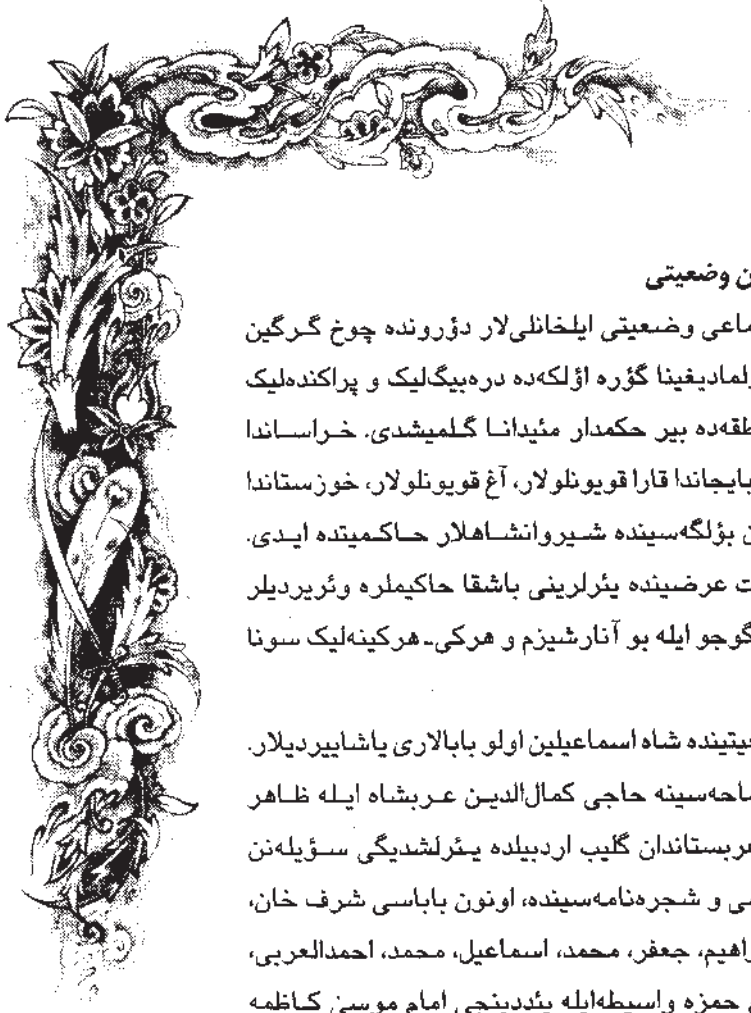 ن وضعیتی
ماعی وضعیتی ایلخانلی‌لار دؤرونده چوخ گـرگین
لمادیغینا گؤره اؤلکه‌ده دره‌بیگلیک و پراکنده‌لیک
طقه‌ده بیر حکمدار مئیدانـا گـلمیشدی. خـراسـاندا
بایجاندا قارا قویونلولار، آغ قویونلولار، خوزستاندا
ن بؤلگه‌سینده شـیروانشـاهلار حـاکـمیتده ایـدی.
ت عرضینده یئرلرینی باشقا حاکیملره وئریردیلر
گوجو ایله بو آنارشیزم و هرکی‌ـ هرکینه‌لیک سونا
عیتینده شاه اسماعیلین اولو بابالاری یاشاییردیلار.
ـاحه‌سینه حاجی کمال‌الدیـن عـربشاه ایـله ظـاهر
عربستاندان گلیب اردبیلده یـئرلشدیگی سـؤیله‌نن
سی و شجره‌نامه‌سینده، اونون باباسی شرف خان،
راهیم، جعفر، محمد، اسماعیل، محمد، احمدالعربی،
حمزه واسیطه‌ایله یئددینجی امام موسی کـاظمه